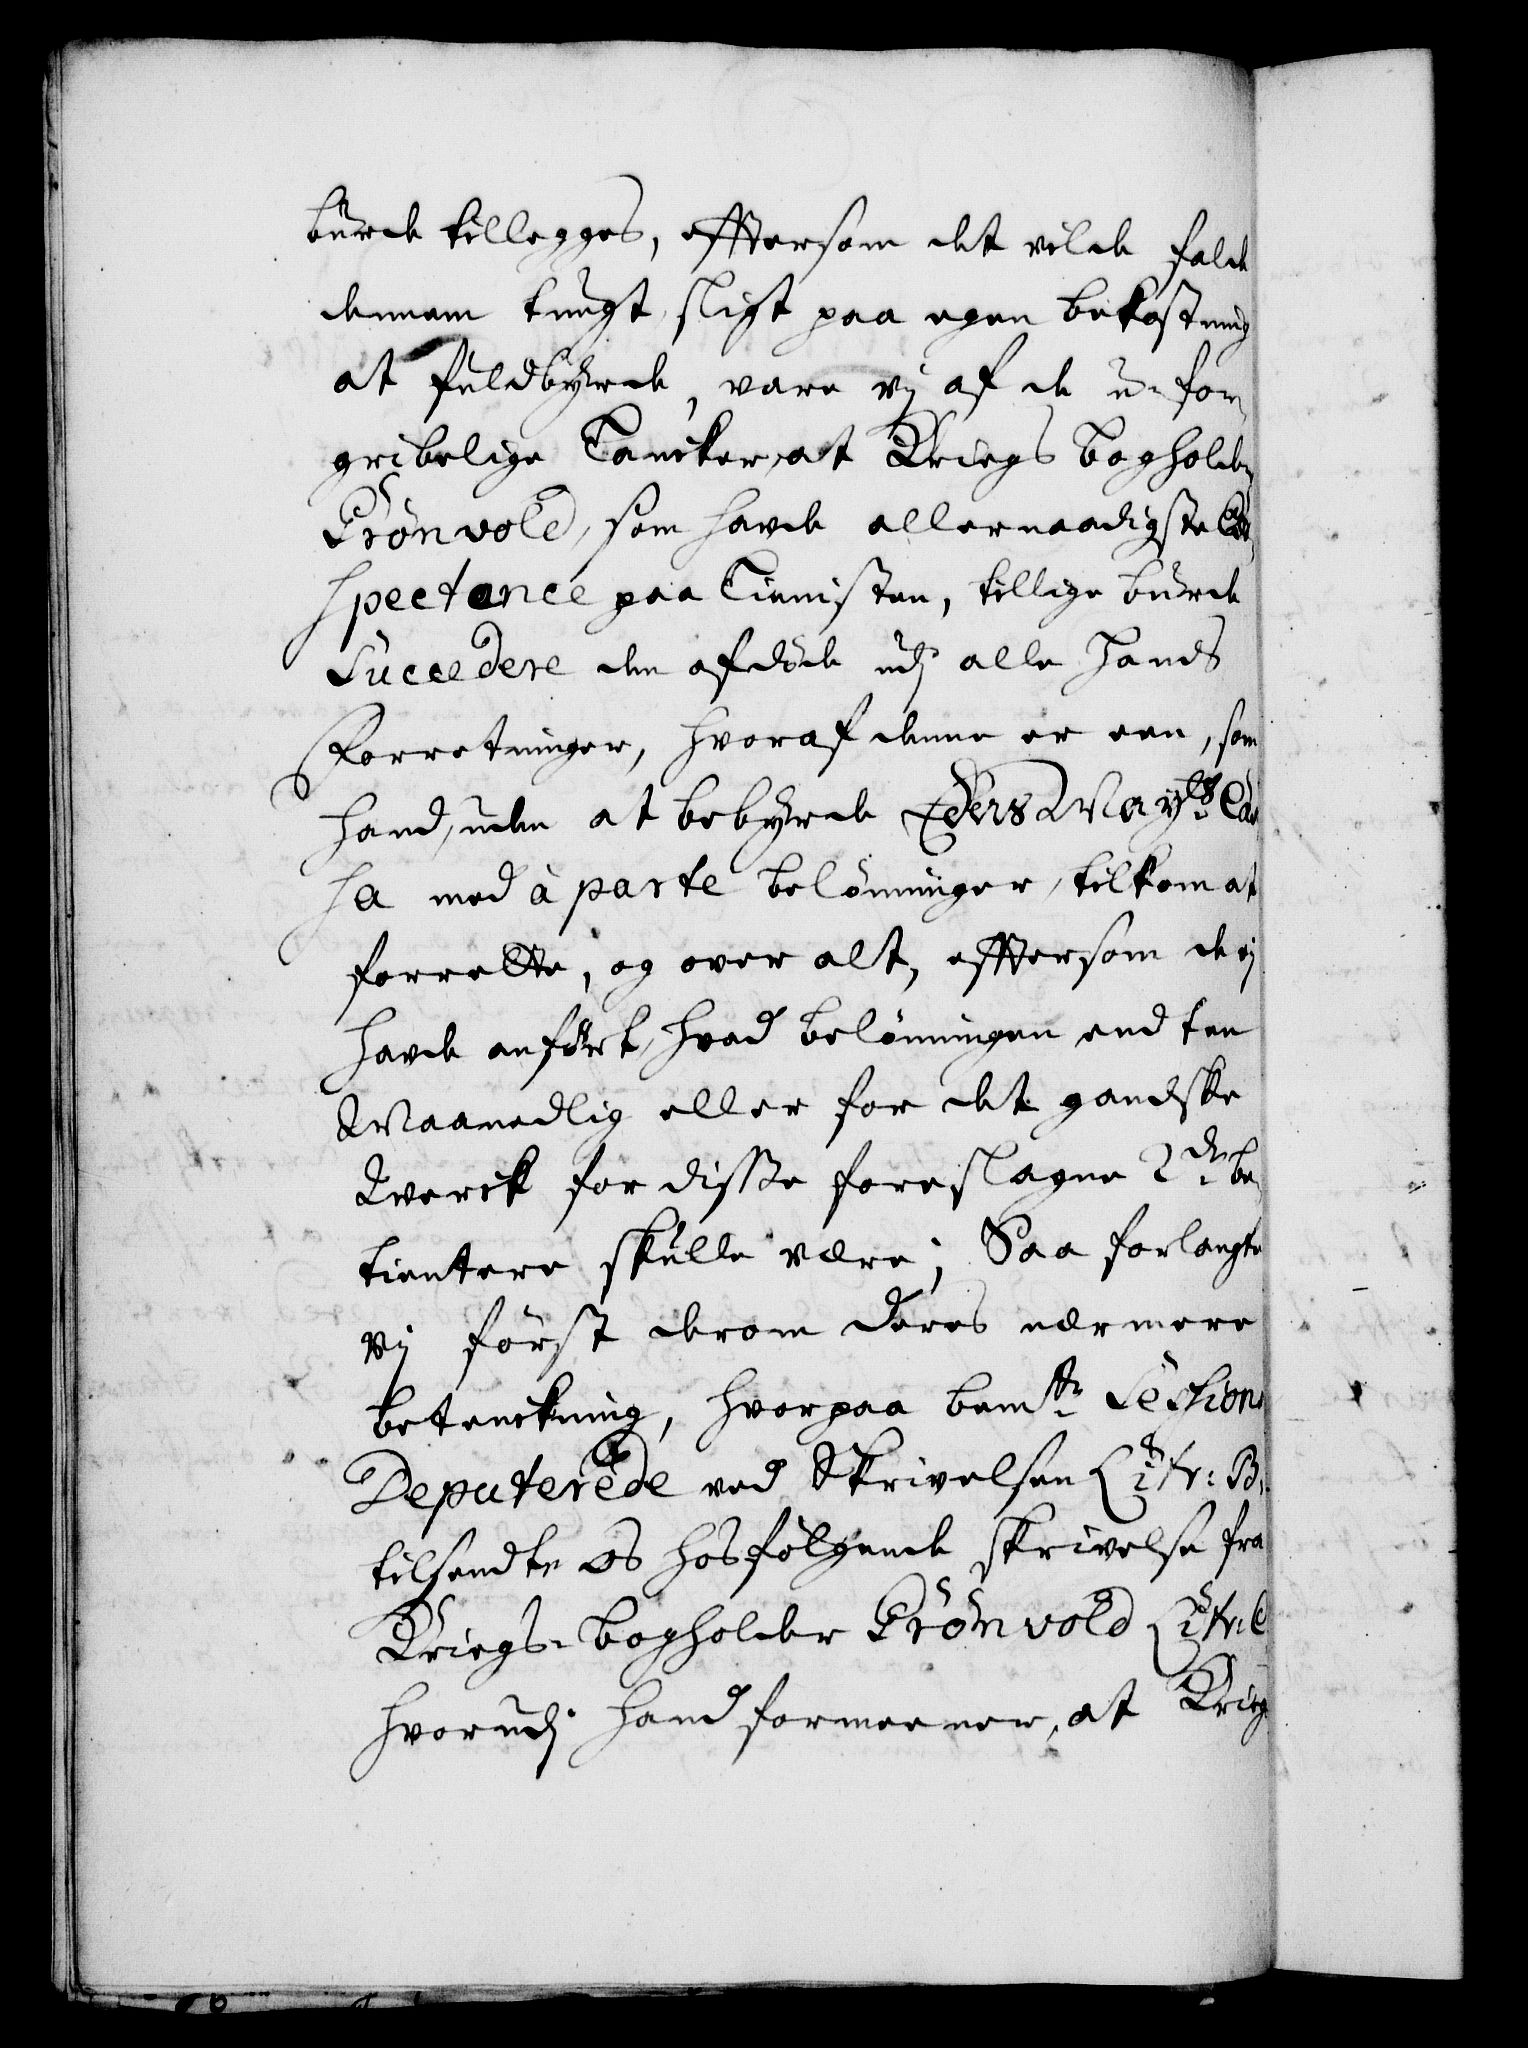 burde tillegges, efftersom det vilde falde
dennem tungt, sligt paa egen bekostning
at fuldbyrde, vare vj af de u-for¬
gribelige Tancker, at Kriegs Bogholder
Grönvold, som havde allernaadigste Ex¬
spectance paa Tienisten, tillige burde
Succedere den afdöde udj alle hands
Forretninger, hvoraf denne er een, som
hand, uden at bebyrde Eders May:ts Cas¬
sa med à parte belönninger, tilkom at
forrette, og over alt, efftersom de ej
havde anfört, hvad belönningen endten
Maanedlig eller for det gandske
Verck for disse foreslagne 2de be¬
tientere skulle være; Saa forlangte
vj först derom deres nærmere
betenckning, hvorpaa bemte Sessions
Deputerede ved Skrivelsen Litr: B:
tilsendte os hosfölgende skrivelse fra
Kriegs-bogholder Grönvold Litr: C
hvorudj hand formeener, at Krieg